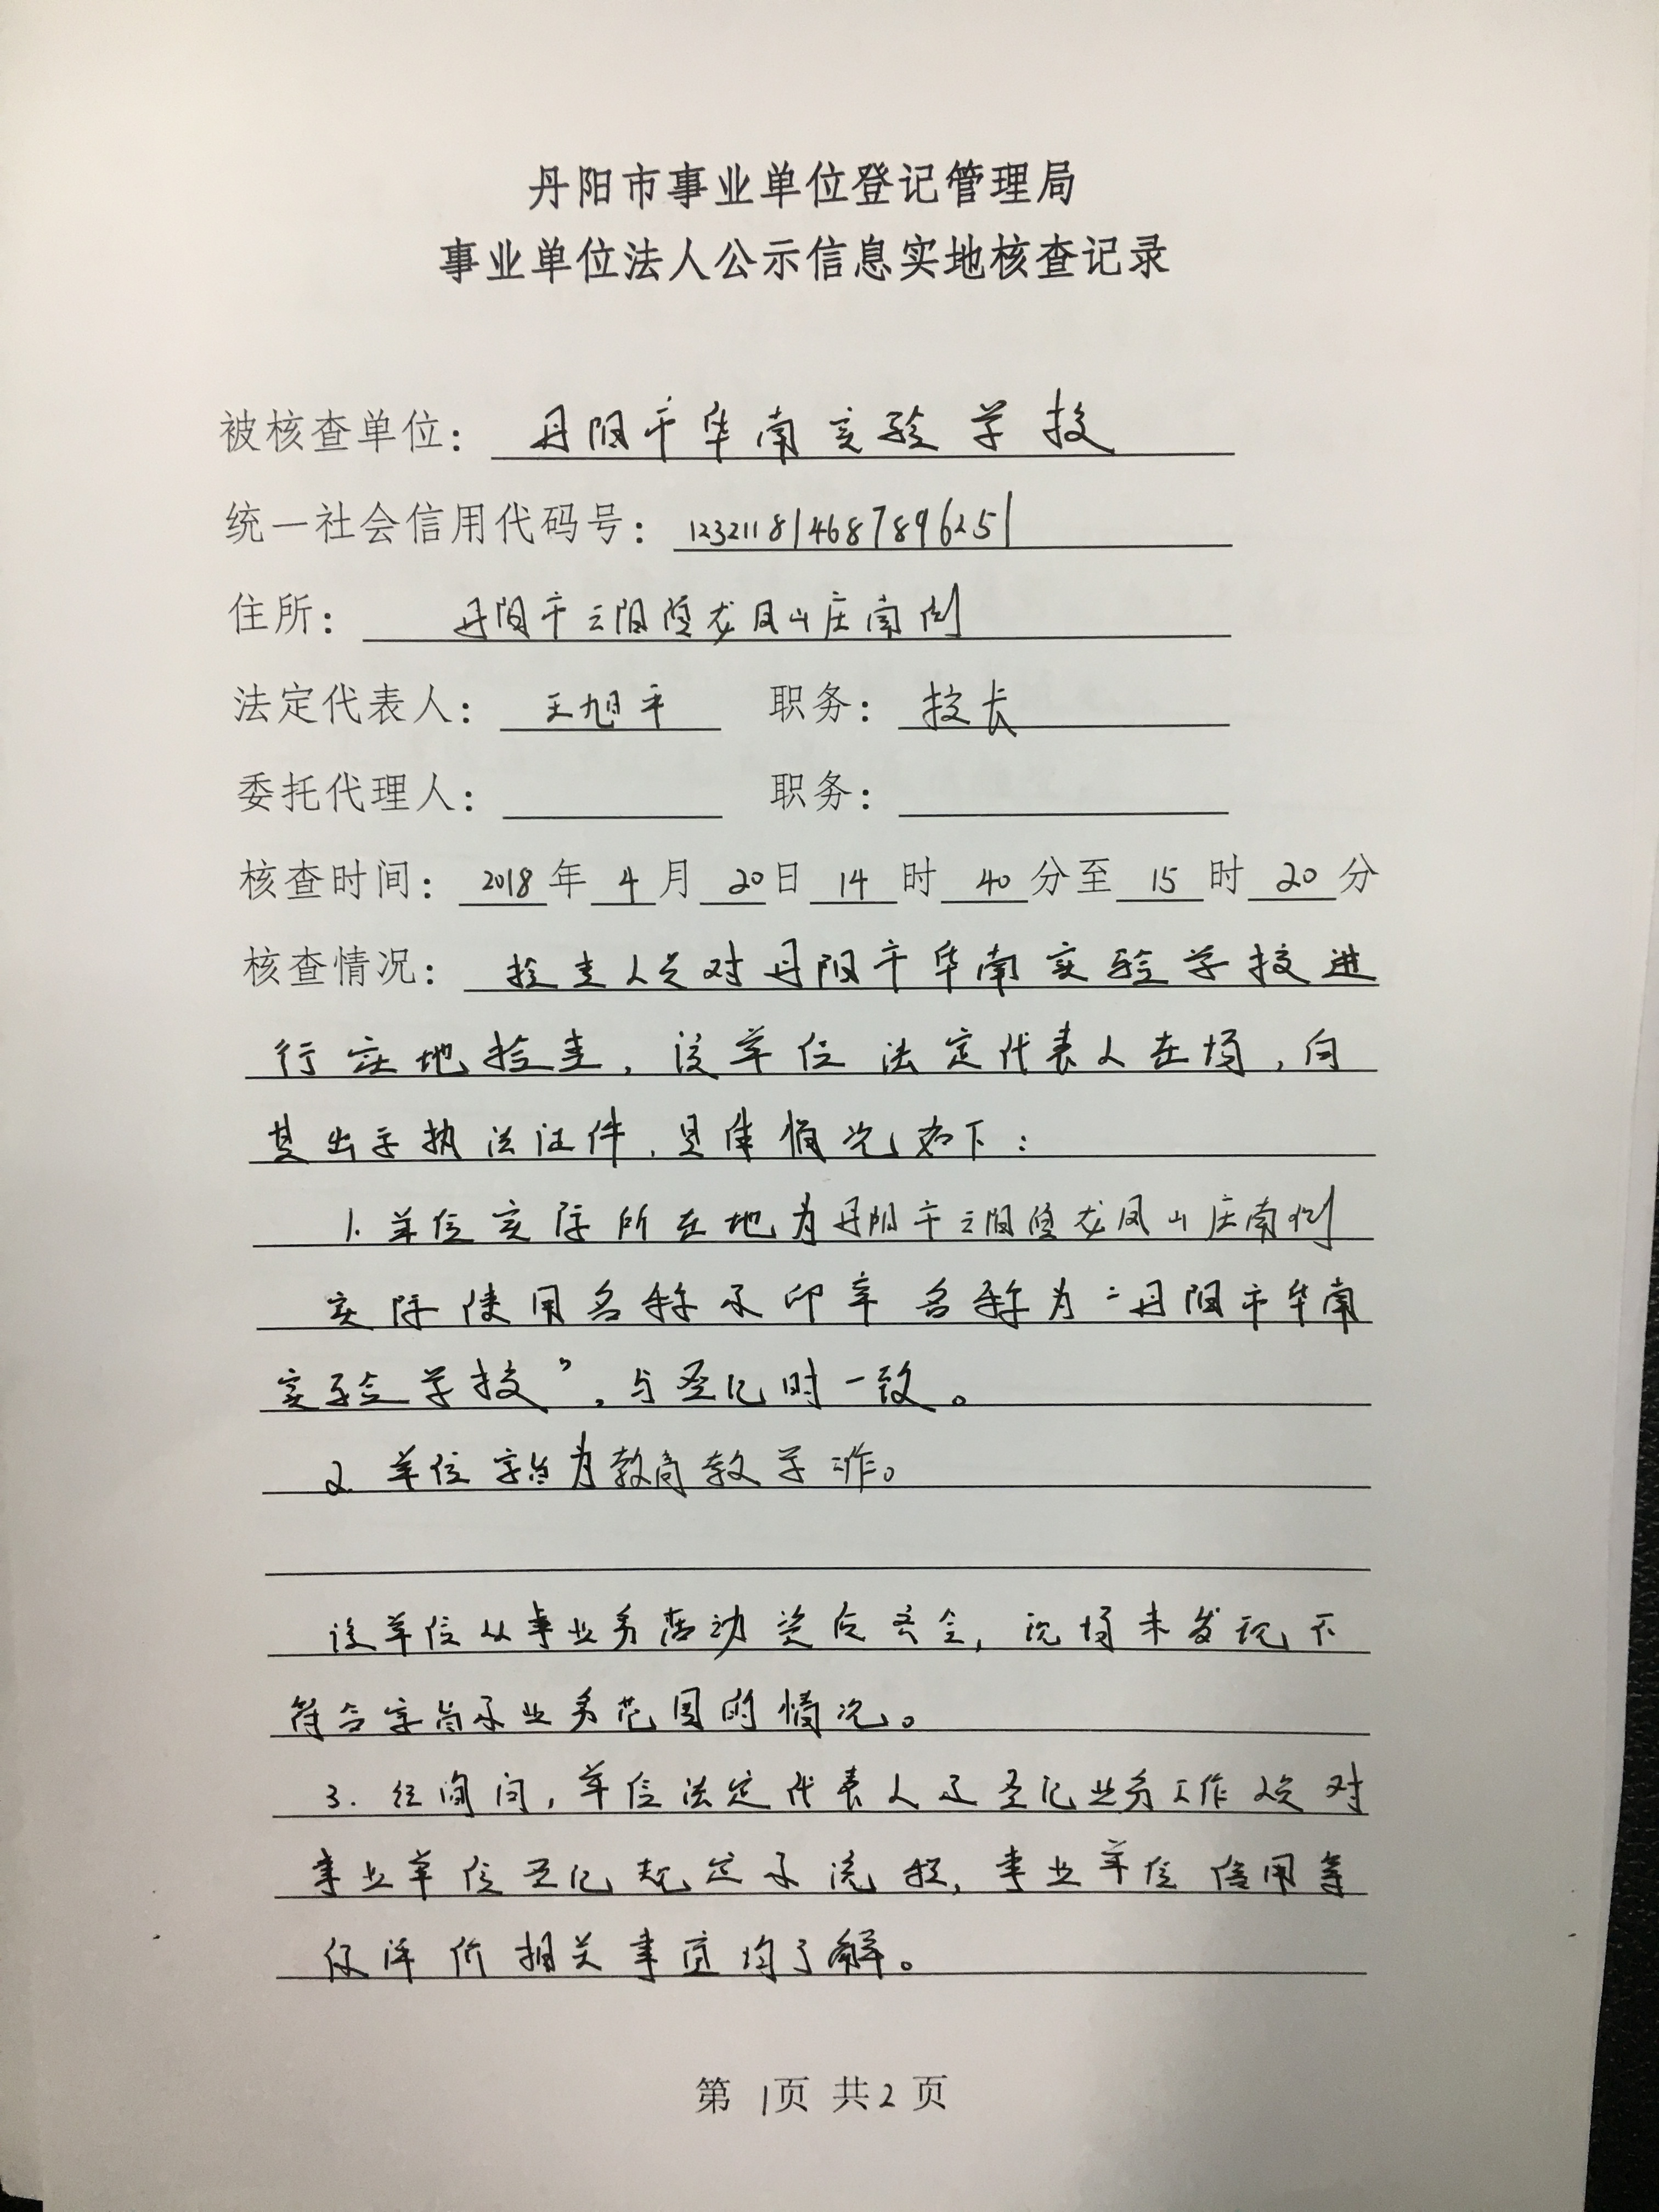 丹阳市事业单位登记管理局
事业单位法人公示信息实地核查记录
被核查单位：丹阳市华南实验学校
统一社会信用代码号：123211814687896251
住所：丹阳市云阳镇龙凤山庄南侧
法定代表人：王旭平 职务：校长
委托代理人： 职务：
核查时间：2018年4月20日14时40分至15时20分
核查情况：检查人员对丹阳市华南实验学校进
行实地检查，该单位法定代表人在场，向
其出示执法证件，具体情况如下：
1.单位实际所在地为丹阳市云阳镇龙凤山庄南侧
实际使用名称及印章名称为“丹阳市华南
实验学校”，与登记时一致。
2.单位宗旨为教育教学工作。
该单位从事业务活动资质齐全，现场未发现不
符合宗旨及业务范围的情况。
3.经询问，单位法定代表人及登记业务工作人员对
事业单位登记规定及流程，事业单位信用等
级评价相关事宜均了解。
第1页 共2页